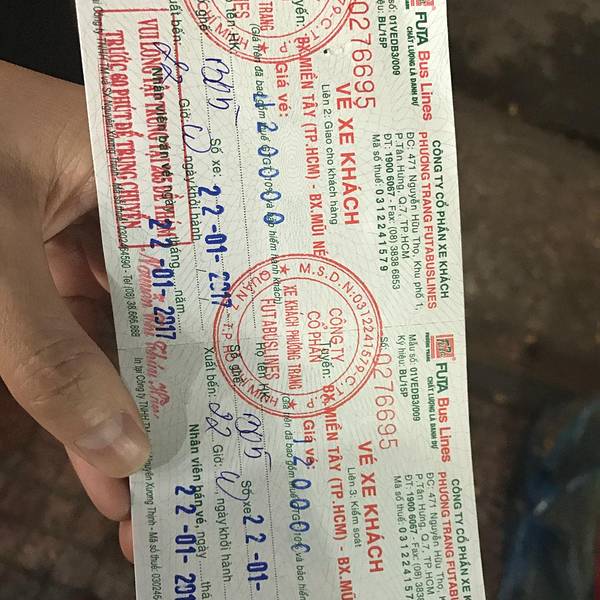 FUTA Bus Lines
CHẤT LƯỢNG LÀ DANH DỰ
Mẫu số: 01VEDB3/009
Ký hiệu: BL/15P
0276695
CÔNG TY CỔ PHẦN XE KHÁCH
PHƯƠNG TRANG FUTABUSLINES
ĐC: 471 Nguyễn Hữu Thọ, Khu phố 1,
P.Tân Hưng, Q.7, TP.HCM
ĐT: 1900 6067 - Fax: (08) 3838 6853
Mã số thuế: 0312241579
VÉ XE KHÁCH
Liên 2: Giao cho khách hàng
Tuyến: BX.MIỀN TÂY (TP.HCM) - BX.MŨI NÉ
Giá vé:
(Giá trên đã bao gồm thuế GTGT 10% và bảo hiểm hành khách)
Họ tên HK
Số ghế: B05 Số xe:
Xuất bến: 22 Giờ: , ngày khởi hành
22-01-2017
Nhân viên bán vé, ngày tháng năm
22-01-2017
VUI LÒNG
TRƯỚC 60 PHÚT ĐỂ TRUNG CHUYỂN
M.S.D.N:0312241579-C.T.C.P
CÔNG TY
CỔ PHẦN
XE KHÁCH PHƯƠNG TRANG
FUTABUSLINES
PHƯƠNG TRANG
FUTA Bus Lines
CHẤT LƯỢNG LÀ DANH DỰ
Mẫu số: 01VEDB3/009
Ký hiệu: BL/15P
Số: 0276695
CÔNG TY CỔ PHẦN XE
PHƯƠNG TRANG FUTABUS
ĐC: 471 Nguyễn Hữu Thọ, K
P.Tân Hưng, Q.7, TP.HCM
ĐT: 1900 6067 - Fax: (08)
Mã số thuế: 03122
VÉ XE KHÁCH
Liên 3: Kiểm soát
Tuyến: BX.MIỀN TÂY (TP.HCM) - BX.MŨI
Giá vé:
140000
(Giá trên đã bao gồm thuế GTGT 10% và bảo hiểm
Họ tên HK
Số ghế: B05 Số xe:
Xuất bến: 22 Giờ: , ngày khởi hành
22-01-
Nhân viên bán vé, ngày thá
22-01-2017